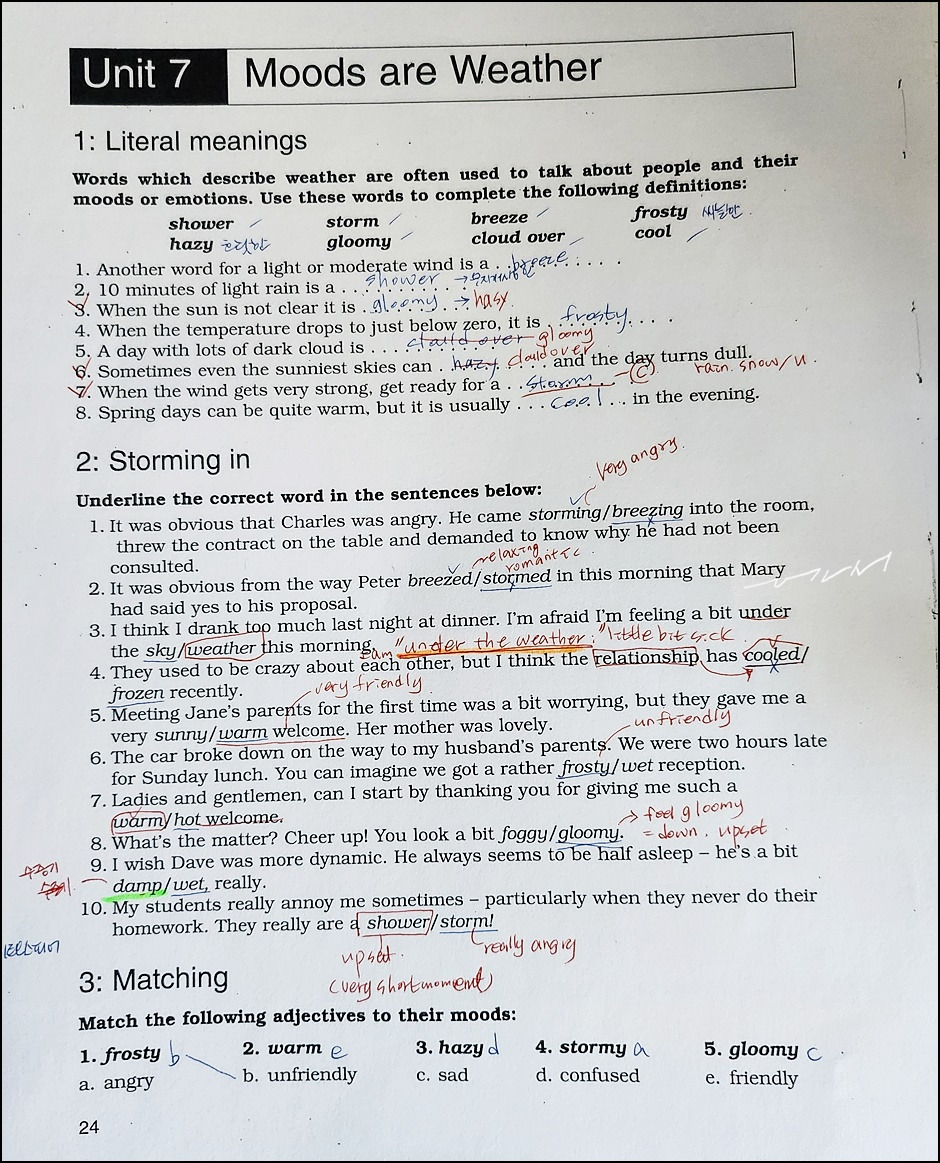 Unit 7 Moods are Weather
1: Literal meanings
Words which describe weather are often used to talk about people and their
moods or emotions. Use these words to complete the following definitions:
shower storm breeze frosty
hazy gloomy cloud over cool
1. Another word for a light or moderate wind is a . . breeze . . . .
2. 10 minutes of light rain is a . . . shower →
3. When the sun is not clear it is . gloomy . → hasy
4. When the temperature drops to just below zero, it is . frosty . . . .
5. A day with lots of dark cloud is . . . . cloud over gloomy
6. Sometimes even the sunniest skies can . hazy cloud over . . . and the day turns dull.
7. When the wind gets very strong, get ready for a . . storm – (C) rain. snow/
8. Spring days can be quite warm, but it is usually . . . cool . . . in the evening.
2: Storming in
very angry.
Underline the correct word in the sentences below:
1. It was obvious that Charles was angry. He came storming/breezing into the room,
threw the contract on the table and demanded to know why he had not been
consulted.
relaxing
romantic
2. It was obvious from the way Peter breezed/stormed in this morning that Mary
had said yes to his proposal.
3. I think I drank too much last night at dinner. I'm afraid I'm feeling a bit under
the sky/weather this morning. am "under the weather:" "little bit sick
4. They used to be crazy about each other, but I think the relationship has cooled/
frozen recently.
very friendly
5. Meeting Jane's parents for the first time was a bit worrying, but they gave me a
very sunny/warm welcome. Her mother was lovely.
unfriendly
6. The car broke down on the way to my husband's parents. We were two hours late
for Sunday lunch. You can imagine we got a rather frosty/wet reception.
7. Ladies and gentlemen, can I start by thanking you for giving me such a
warm/hot welcome.
→ feel gloomy
8. What's the matter? Cheer up! You look a bit foggy/gloomy. = down. upset
9. I wish Dave was more dynamic. He always seems to be half asleep – he's a bit
damp/wet, really.
10. My students really annoy me sometimes – particularly when they never do their
homework. They really are a shower/storm!
upset. really angry
(very short moment)
3: Matching
Match the following adjectives to their moods:
1. frosty b 2. warm e 3. hazy d 4. stormy a 5. gloomy c
a. angry b. unfriendly c. sad d. confused e. friendly
24